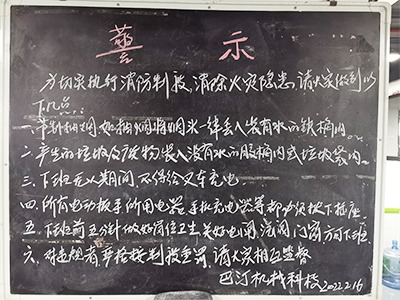 警 示
为切实执行消防制度,消除火灾隐患,请大家做到以
下几点:
一.车间抽烟,如抽烟将烟头一律丢入装有水的铁桶内。
二.产生的垃圾及废物装入没有水的胶桶内或垃圾袋内。
三.下班无人期间,不得给叉车充电
四.所有电动扳手所用电器,手机充电器等都必须拔下插座。
五.下班前五分钟做好岗位卫生,关好电闸,汽阀,门窗方可下班.
六.对违规者严格按制度重罚,请大家相互监督
巴汀机械科技2022.2.16